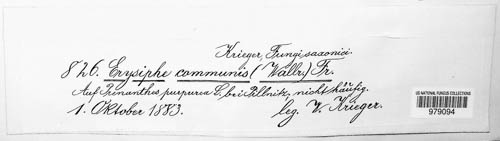 Krieger, Fungi saxonici.
826. Erysiphe communis (Wallr.) Fr.
Auf Prenanthes purpurea L., bei Pillnitz, nicht häufig.
1. Oktober 1883. leg. W. Krieger.
US NATIONAL FUNGUS COLLECTIONS
979094